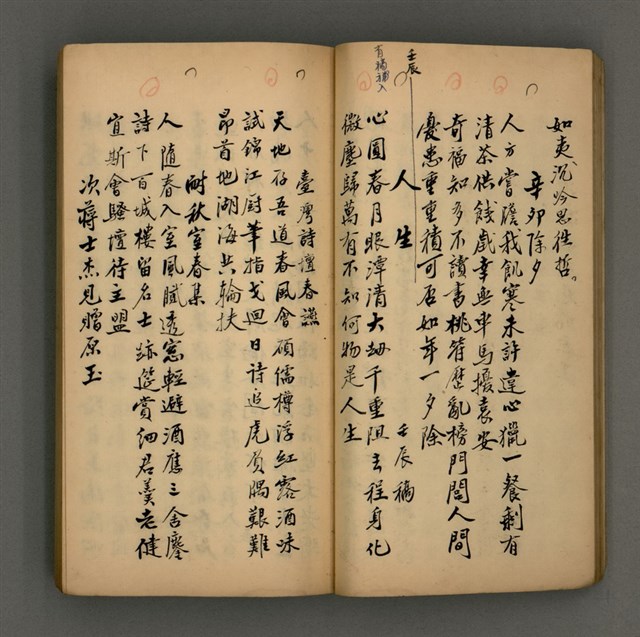 如夷沉吟思往哲。
辛卯除夕
人方當膽我飢寒未許違心獵一餐剩有
清茶供餞歲幸無車馬擾袁安
奇福知多不讀書桃符歷亂榜門閭人間
憂患重重積可否如年一夕除
壬辰
有稿補入
人生 壬辰稿
心圓春月眼潭清大劫千重阻去程身化
微塵歸萬有不知何物是人生
臺灣詩壇春讌
天地存吾道春風會碩儒樽浮紅露酒味
試錦江廚筆指戈迴日詩追虎負隅艱難
昂首地湖海共輪扶
耐秋室春集
人隨春入室風膩透窓輕避酒應三舍鏖
詩下百城樓留名士跡筵賞細君羹老健
宜斯會騷壇待主盟
次蔣士杰見贈原玉